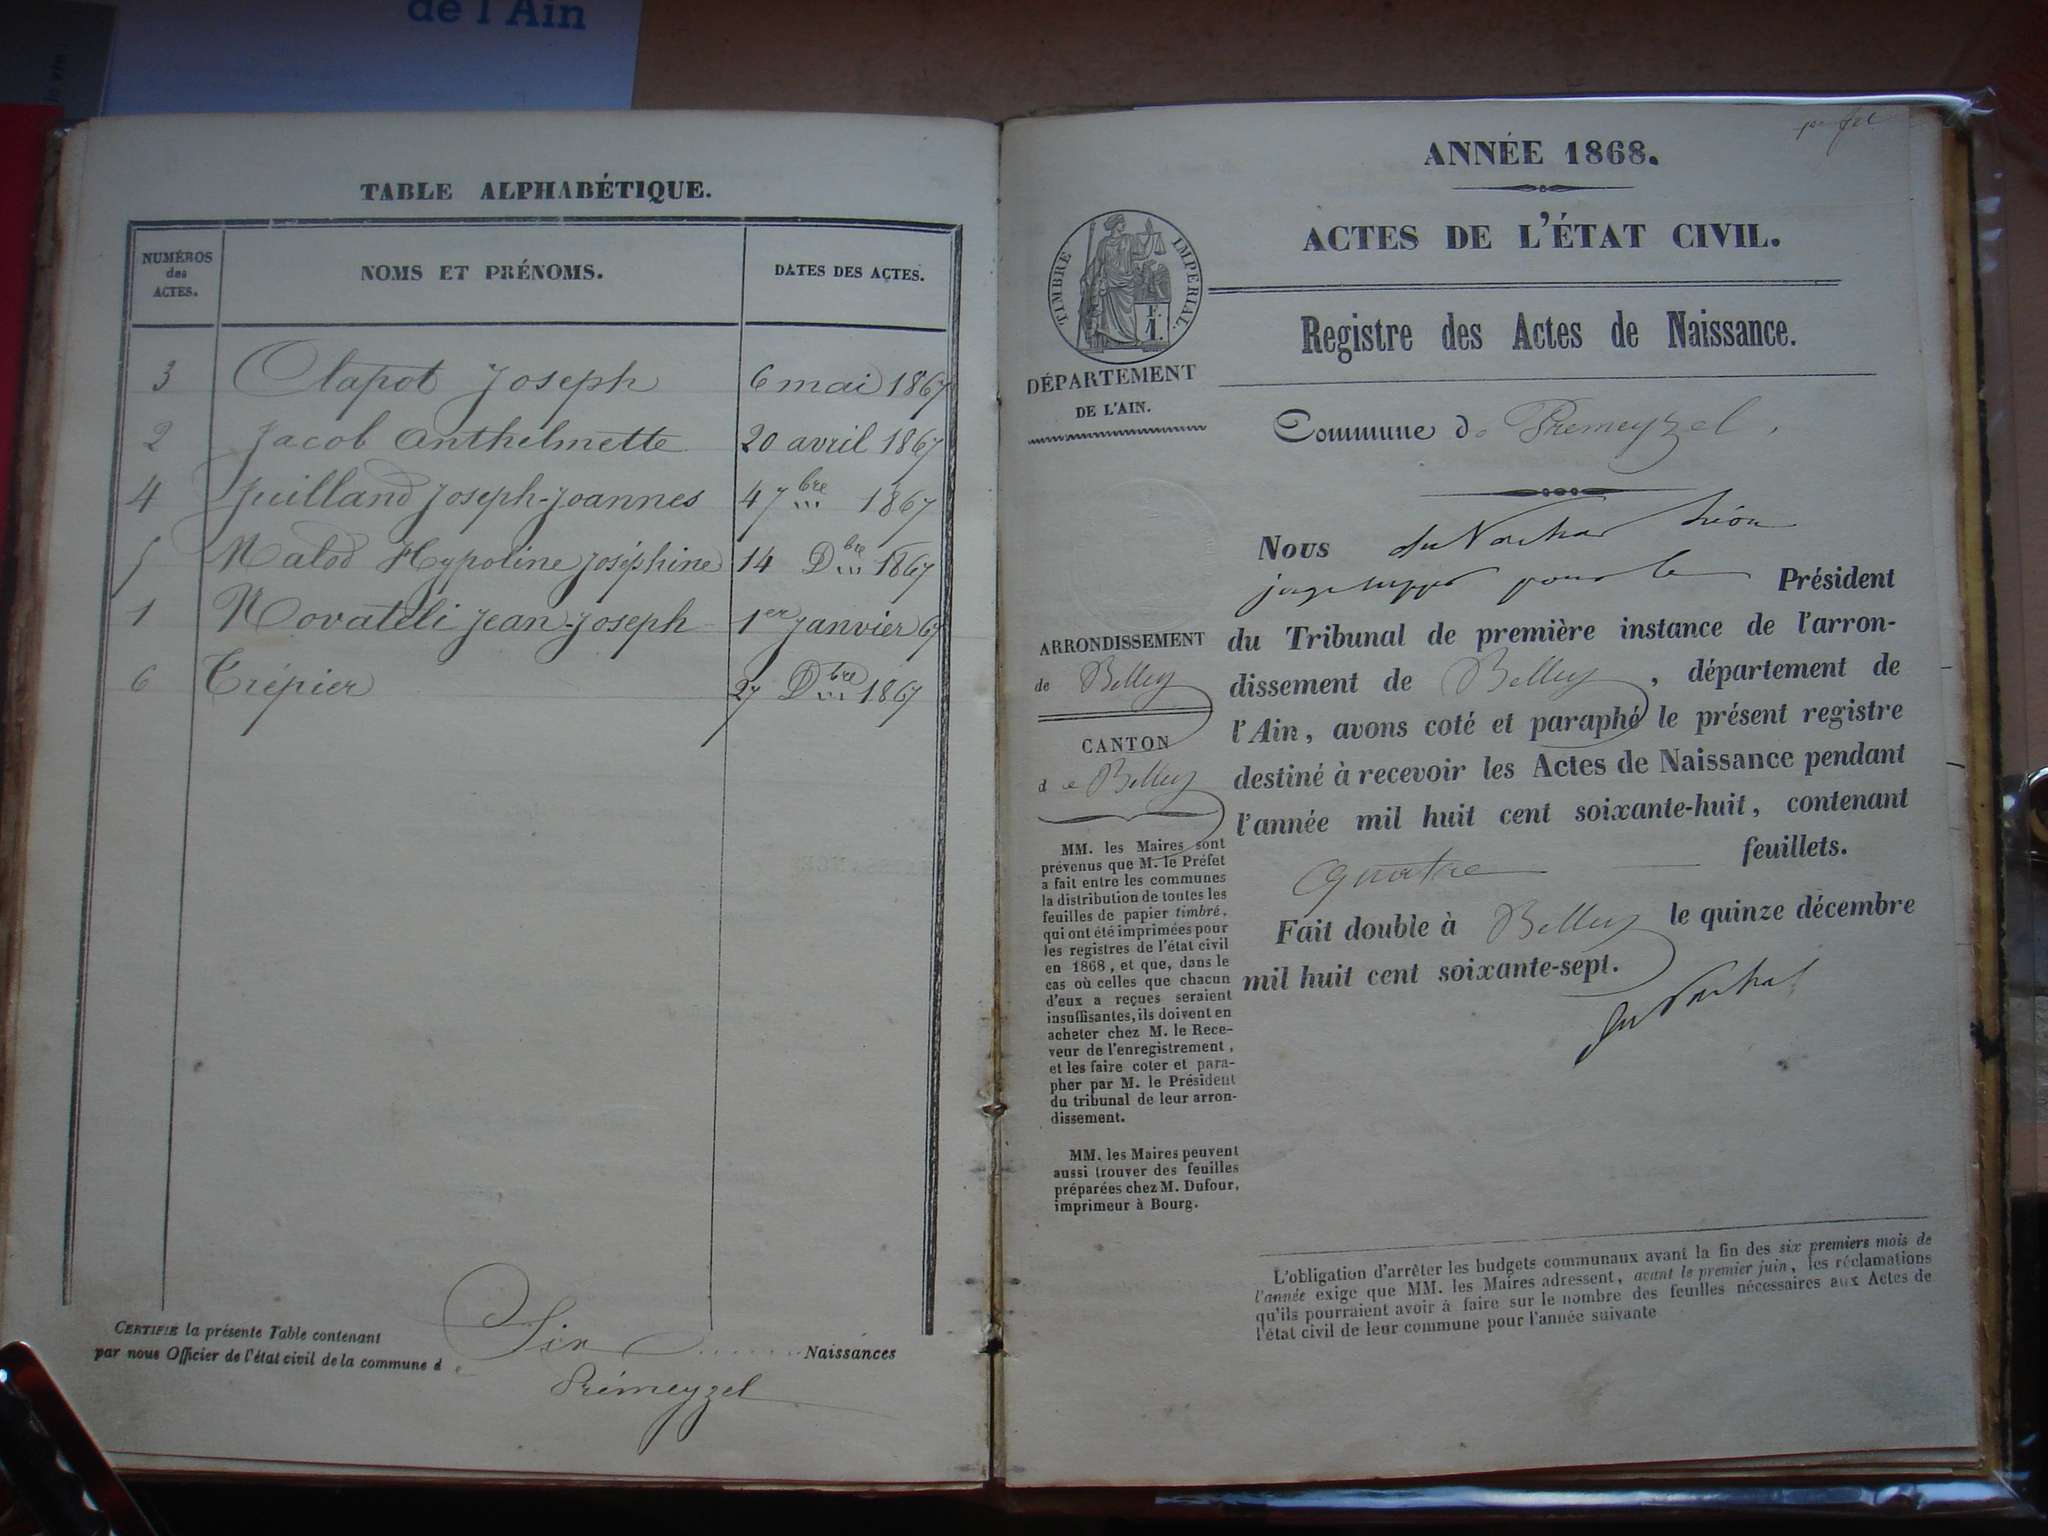 de l'Ain
TABLE ALPHABÉTIQUE.
NUMÉROS des ACTES. NOMS ET PRÉNOMS. DATES DES ACTES.
3 Clapot Joseph 6 mai 1867
2 Jacob Anthelmette 20 avril 1867
4 Juilland Joseph-Joannes 4 7bre 1867
5 Malod Hypoline Joséphine 14 Dbre 1867
1 Novateli Jean-Joseph 1er Janvier 67
6 Trépier 27 Dbre 1867
CERTIFIÉ la présente Table contenant Six Naissances
par nous Officier de l'état civil de la commune de
Prémeyzel
ANNÉE 1868.
ACTES DE L'ÉTAT CIVIL.
TIMBRE IMPÉRIAL.
F. 1.
Registre des Actes de Naissance.
DÉPARTEMENT
DE L'AIN.
Commune de Premeyzel.
ARRONDISSEMENT
de Belley
CANTON
de Belley
MM. les Maires sont
prévenus que M. le Préfet
a fait entre les communes
la distribution de toutes les
feuilles de papier timbré,
qui ont été imprimées pour
les registres de l'état civil
en 1868, et que, dans le
cas où celles que chacun
d'eux a reçues seraient
insuffisantes, ils doivent en
acheter chez M. le Rece-
veur de l'enregistrement,
et les faire coter et para-
pher par M. le Président
du tribunal de leur arron-
dissement.
MM. les Maires peuvent
aussi trouver des feuilles
préparées chez M. Dufour,
imprimeur à Bourg.
Nous
juge pour le Président
du Tribunal de première instance de l'arron-
dissement de Belley, département de
l'Ain, avons coté et paraphé le présent registre
destiné à recevoir les Actes de Naissance pendant
l'année mil huit cent soixante-huit, contenant
quatre feuillets.
Fait double à Belley le quinze décembre
mil huit cent soixante-sept.
L'obligation d'arrêter les budgets communaux avant la fin des six premiers mois de
l'année exige que MM. les Maires adressent, avant le premier juin, les réclamations
qu'ils pourraient avoir à faire sur le nombre des feuilles nécessaires aux Actes de
l'état civil de leur commune pour l'année suivante